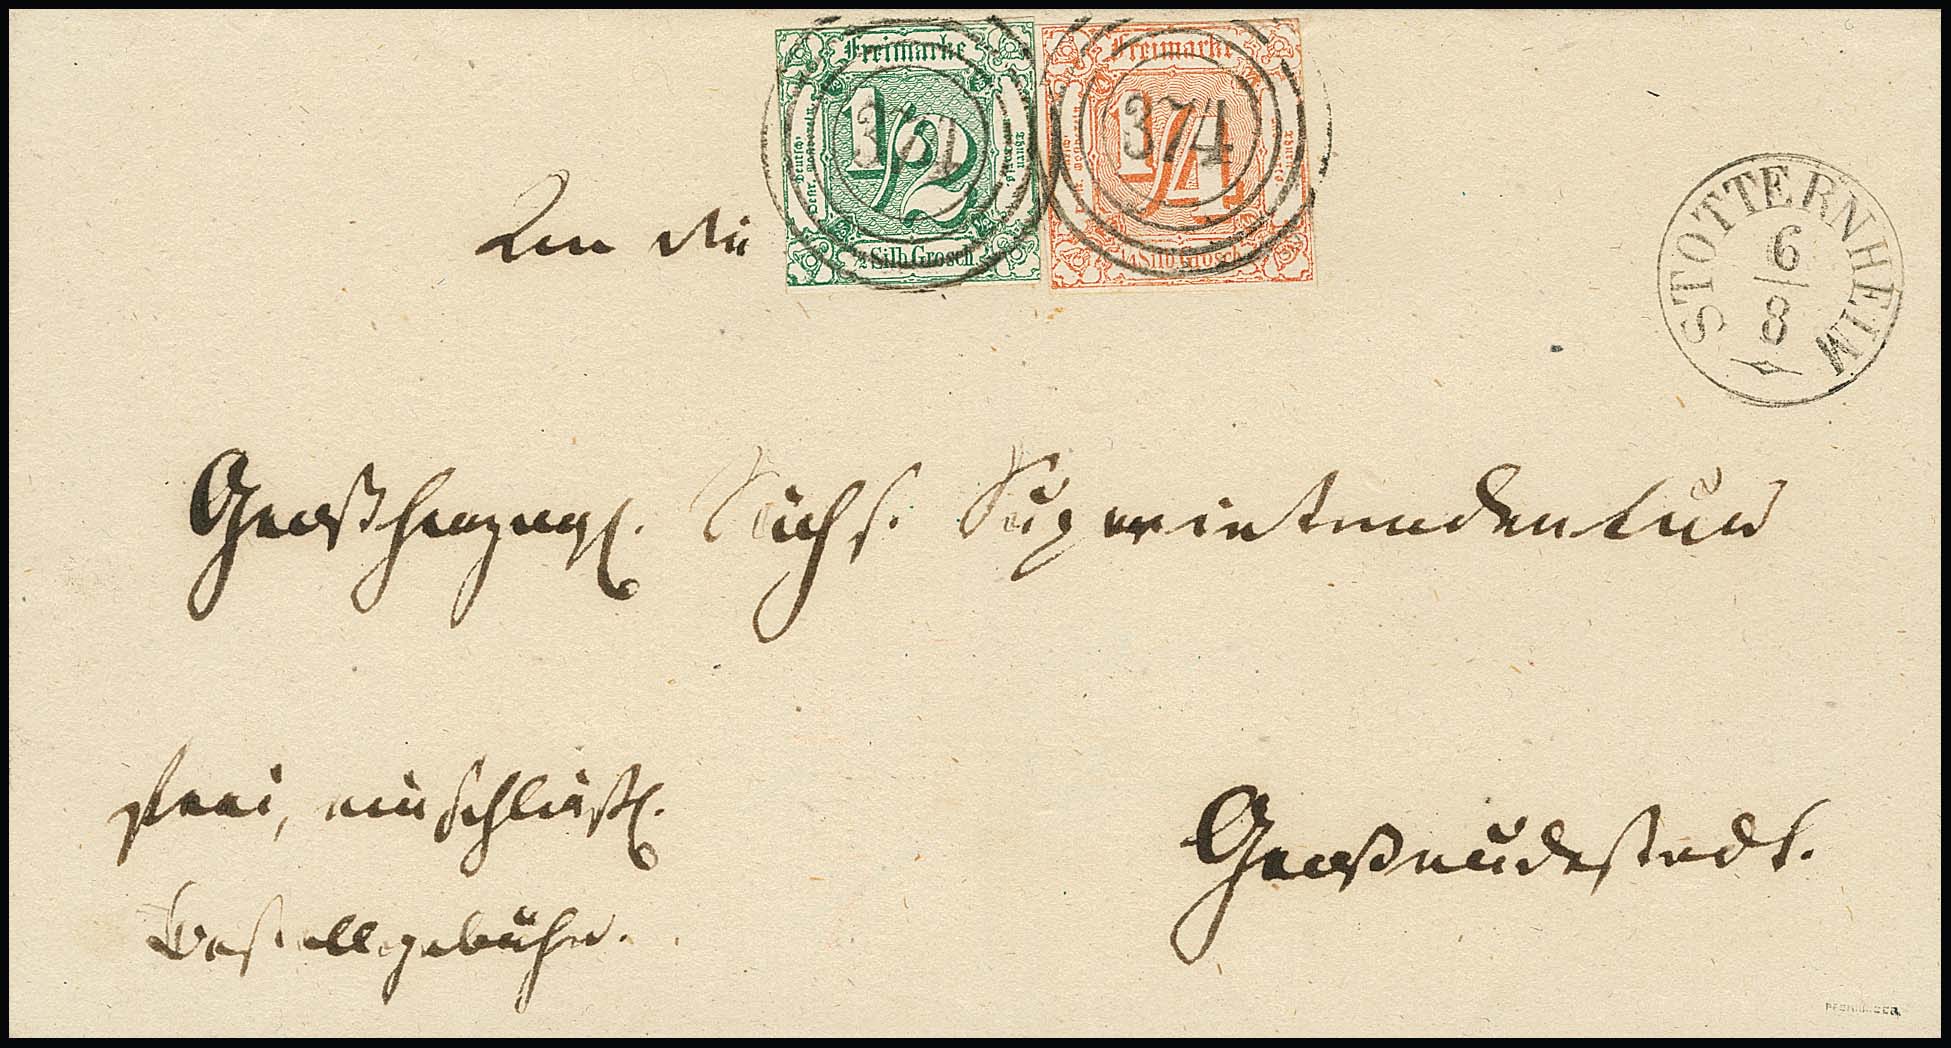 Freimarke
1/2
371
½ Silb. Grosch.
Freimarke
1/4
374
¼ Silb. Grosch.
STOTTERNHEIM
6/8
An die
Großherzogl. Sächs. Superintendentur
frei, einschließl.
Bestellgebühr.
Großrudestedt.